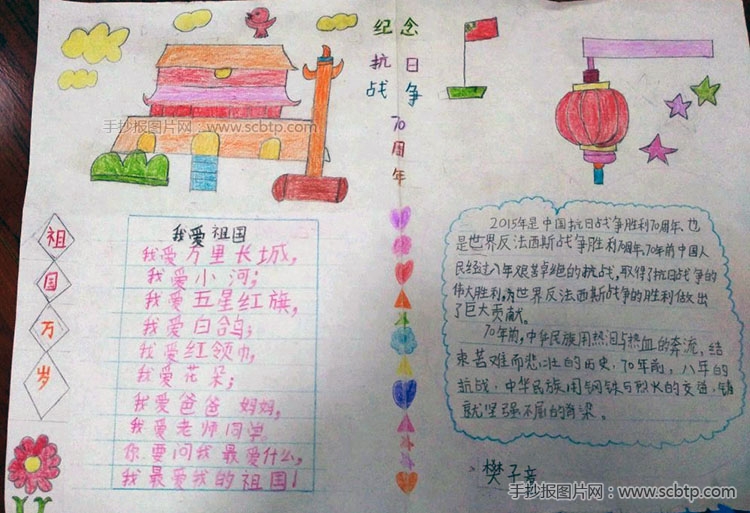 纪念
抗日
战争
70周年
手抄报图片网:www.scbtp.com
祖国万岁
我爱祖国
我爱万里长城,
我爱小河;
我爱五星红旗,
我爱白鸽;
我爱红领巾,
我爱花朵;
我爱爸爸妈妈,
我爱老师同学。
你要问我最爱什么,
我最爱我的祖国!
2015年是中国抗日战争胜利70周年,也
是世界反法西斯战争胜利70周年,70年前中国人
民经过八年艰苦卓绝的抗战,取得了抗日战争的
伟大胜利,为世界反法西斯战争的胜利做出
了巨大贡献。
70年前,中华民族用热泪与热血的奔流,结
束苦难而悲壮的历史,70年前,八年的
抗战,中华民族用钢铁与烈火的交迸,铸
就坚强不屈的脊梁。
樊子
手抄报图片网:www.scbtp.com